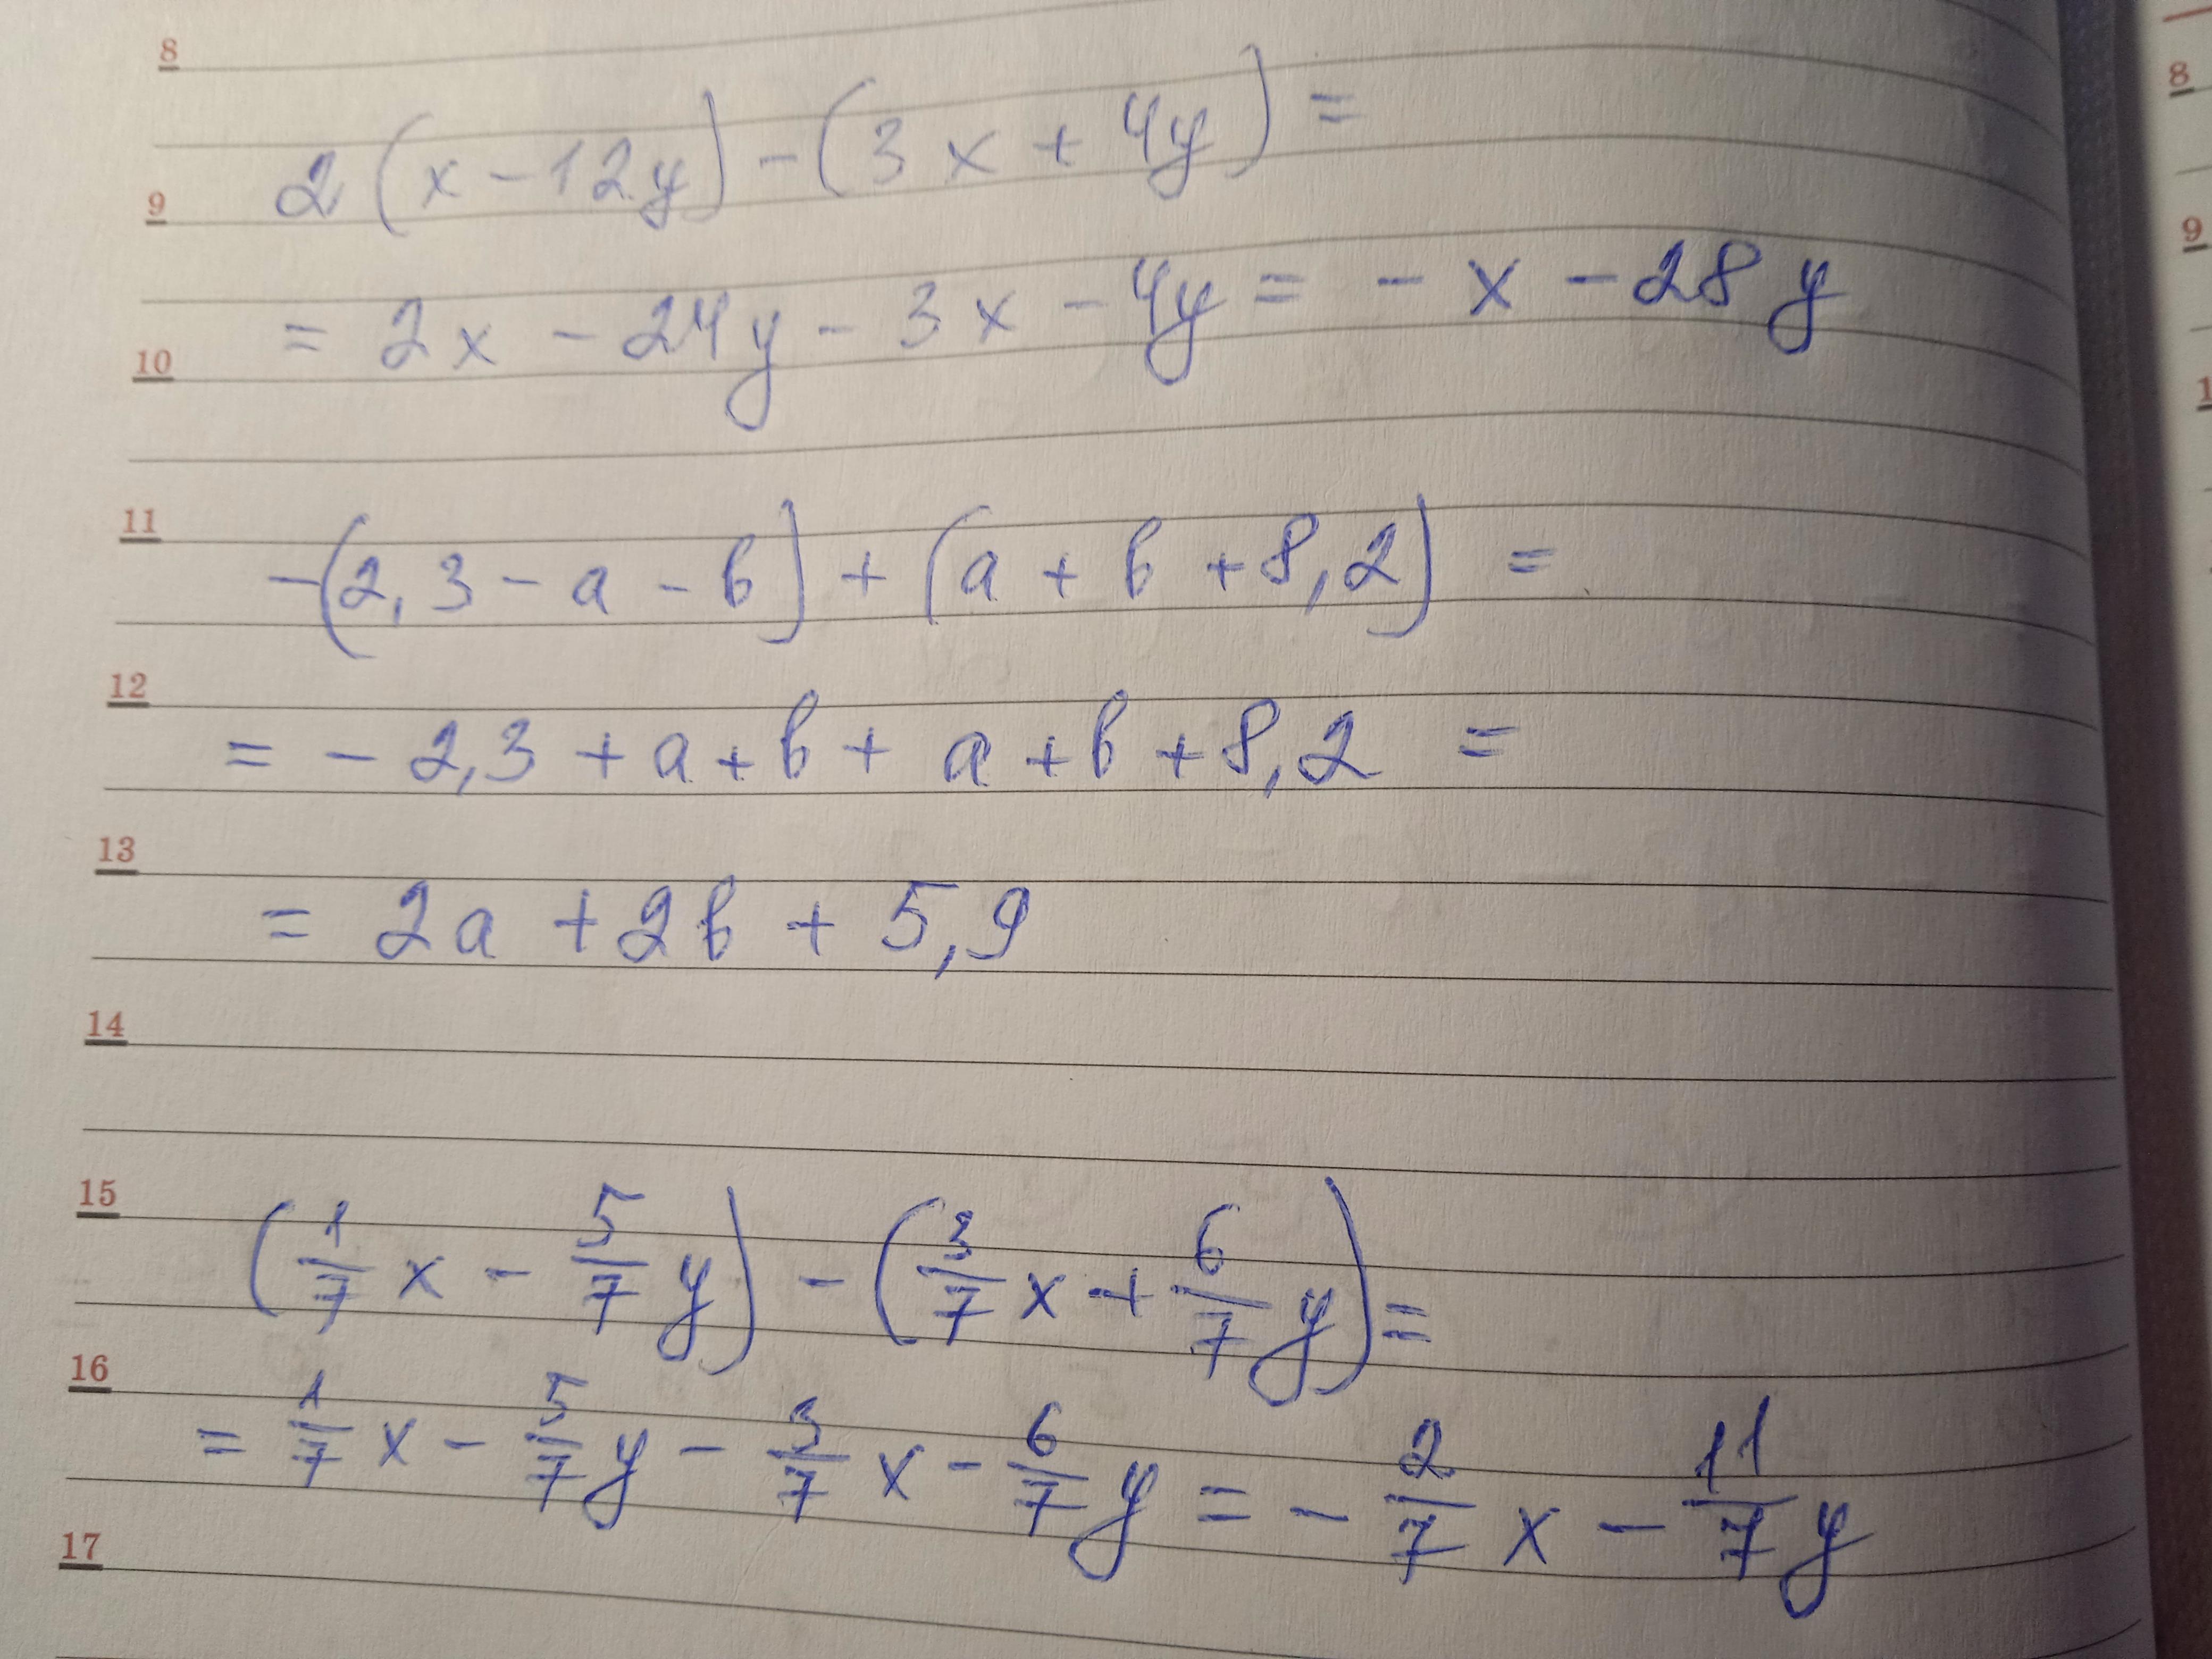 8
2(x-12y)-(3x+4y)=
9
=2x-24y-3x-4y=-x-28y
10
11
-(2,3-a-b)+(a+b+8,2)=
12
=-2,3+a+b+a+b+8,2=
13
=2a+2b+5,9
14
15
(1/7x-5/7y)-(3/7x+6/7y)=
16
=1/7x-5/7y-3/7x-6/7y=-2/7x-11/7y
17
8
9